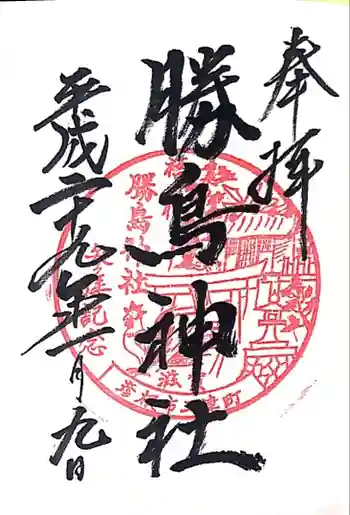 奉拝
勝鳥神社
平成二十九年一月九日
勝鳥神社
参拝記念